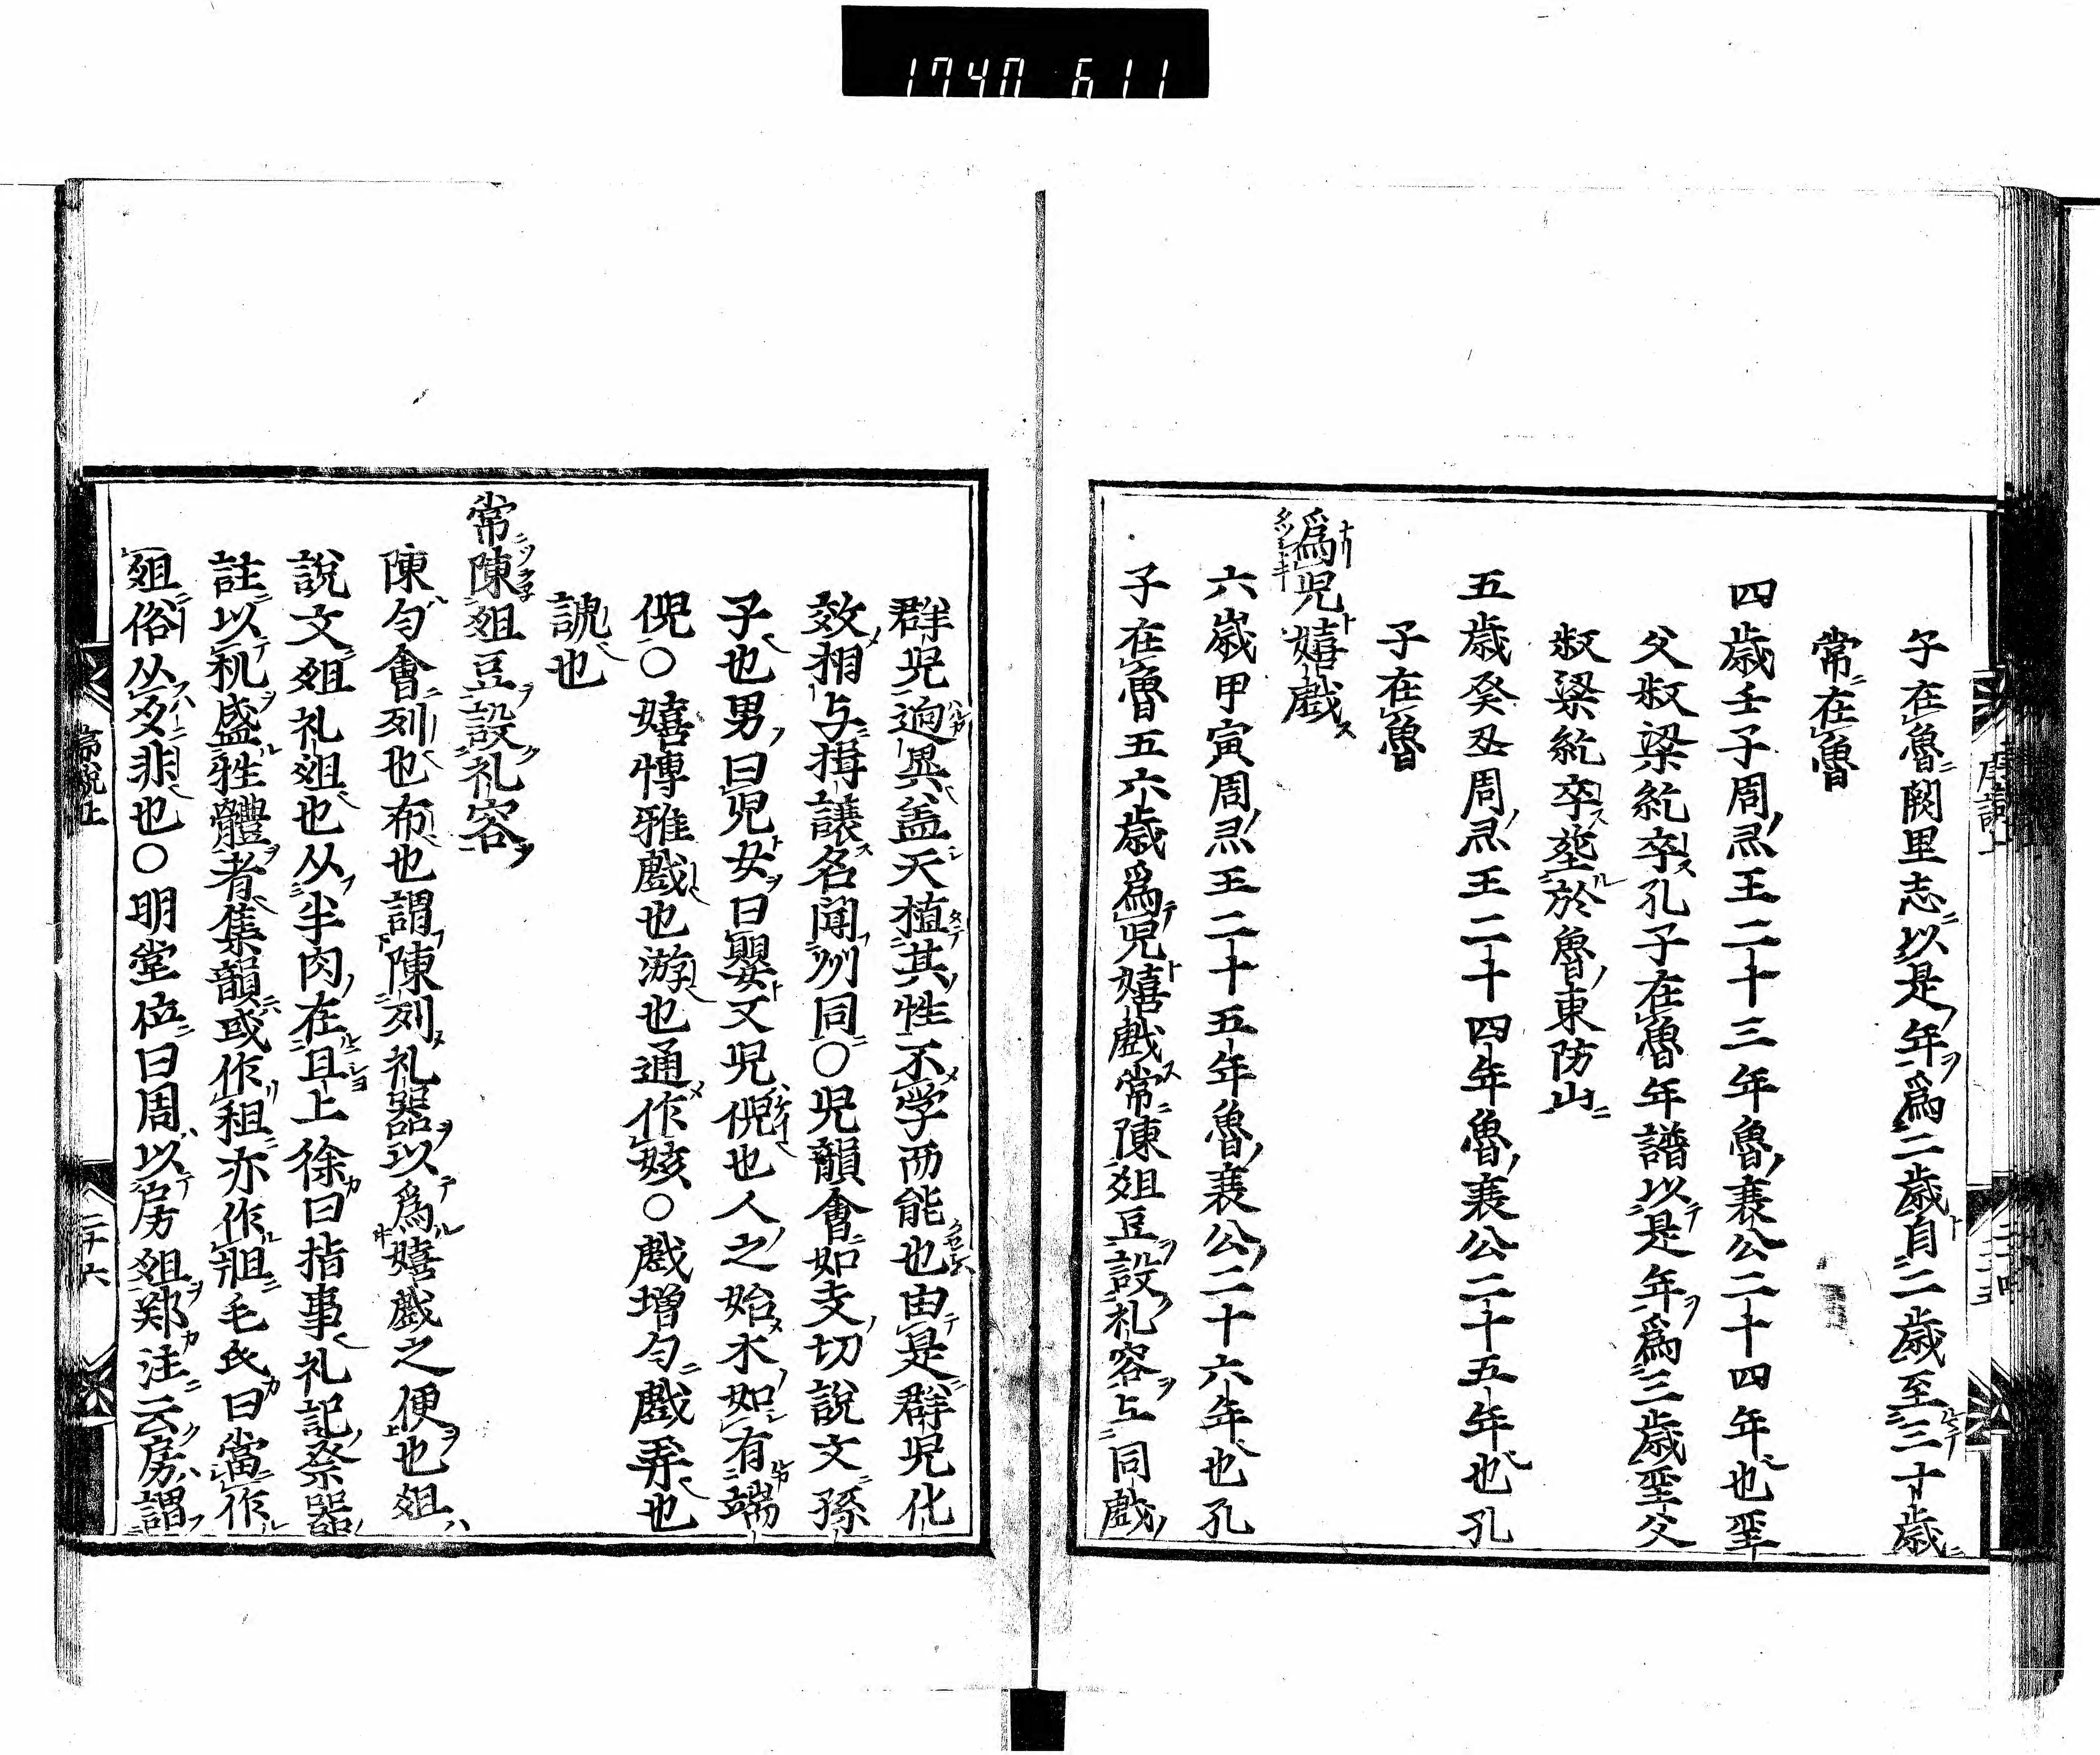 1740 611
子在魯闕里志以是年爲二歲自二歲至三十歲
常在魯
四歲壬子周灵王二十三年魯襄公二十四年也聖
父叔梁紇卒孔子在魯年譜以是年爲三歲聖父
叔梁紇卒葬於魯東防山
五歲癸丑周灵王二十四年魯襄公二十五年也孔
子在魯
爲児嬉戲
六歲甲寅周灵王二十五年魯襄公二十六年也孔
子在魯五六歲爲児嬉戲常陳俎豆設礼容与同戲
群児逈異盖天植其性不学而能也由是群児化
效相与揖讓名闻列同〇児韻會如支切說文孺
子也男曰児女曰嬰又児倪也人之始木如有端
倪〇嬉博雅戲也游也通作娭〇戲增匀戲弄也
謔也
常陳俎豆設礼容
陳匀會列也布也謂陳列礼器以爲嬉戲之便也俎
說文俎礼俎也从半肉在且上徐曰指事礼記祭器
註以机盛牲體者集韻或作柤亦作𤕲毛氏曰當作
俎俗从爻非也〇明堂位曰周以房俎郑注云房謂
二十六